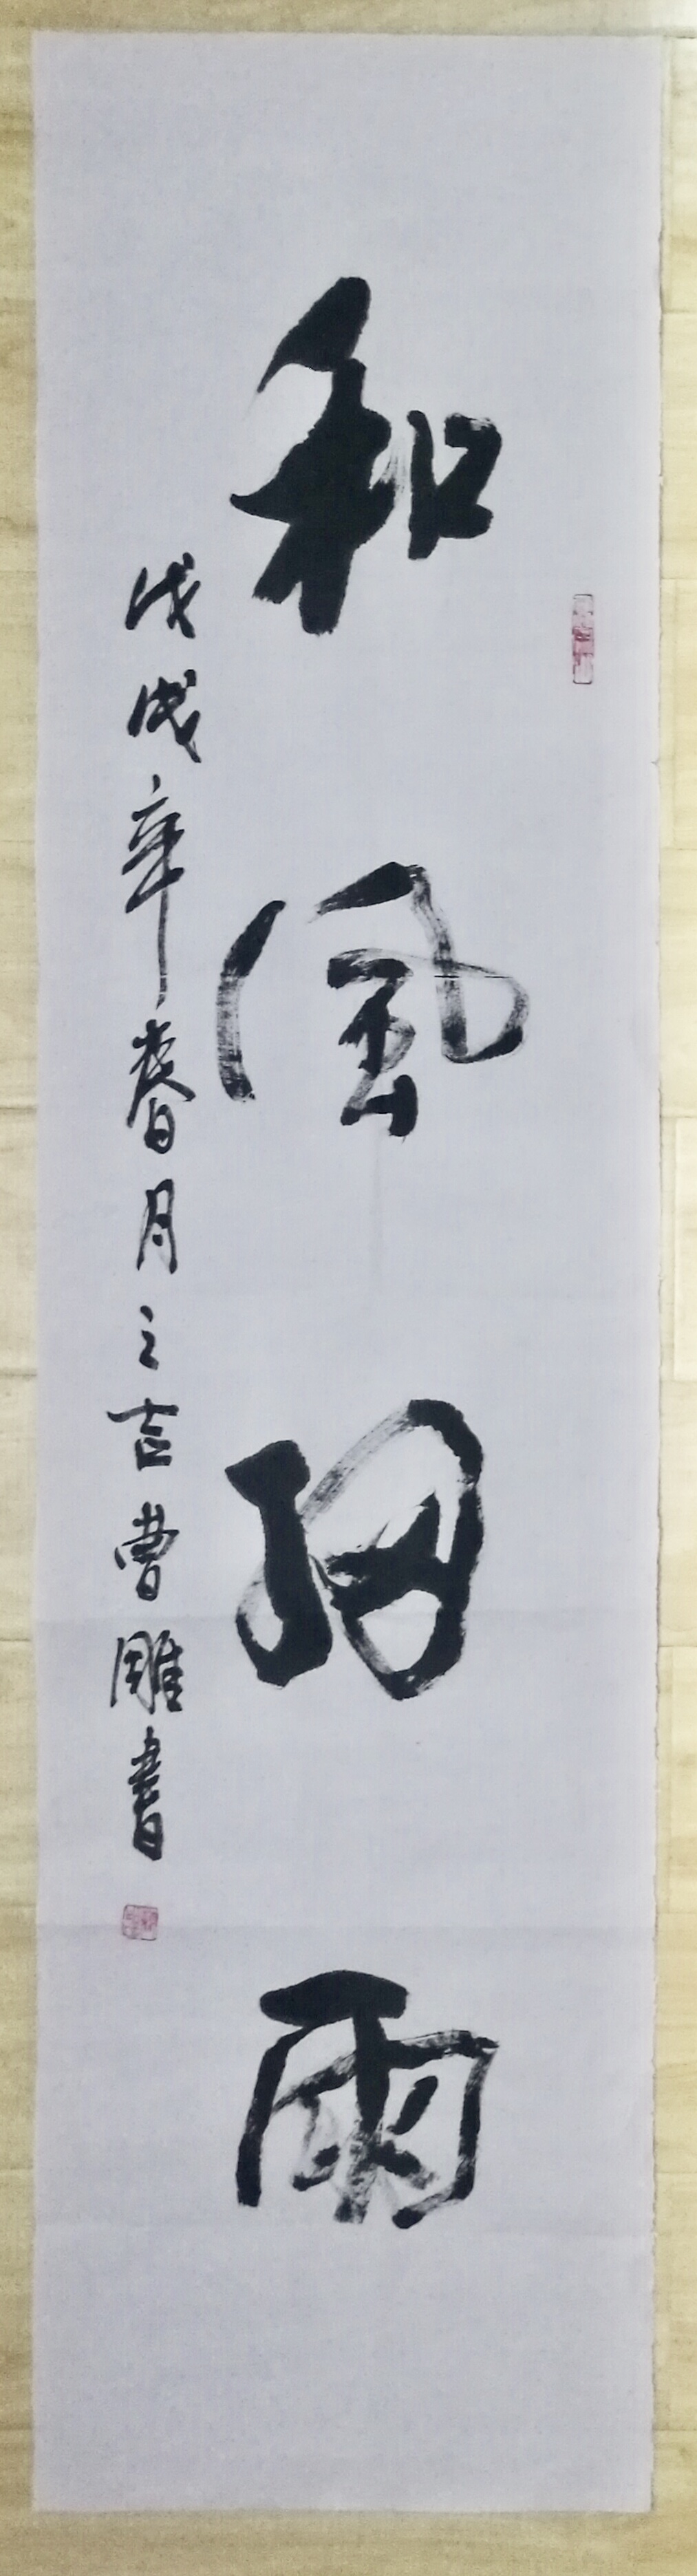 和風細雨
戊戌年春月之吉曹雕書